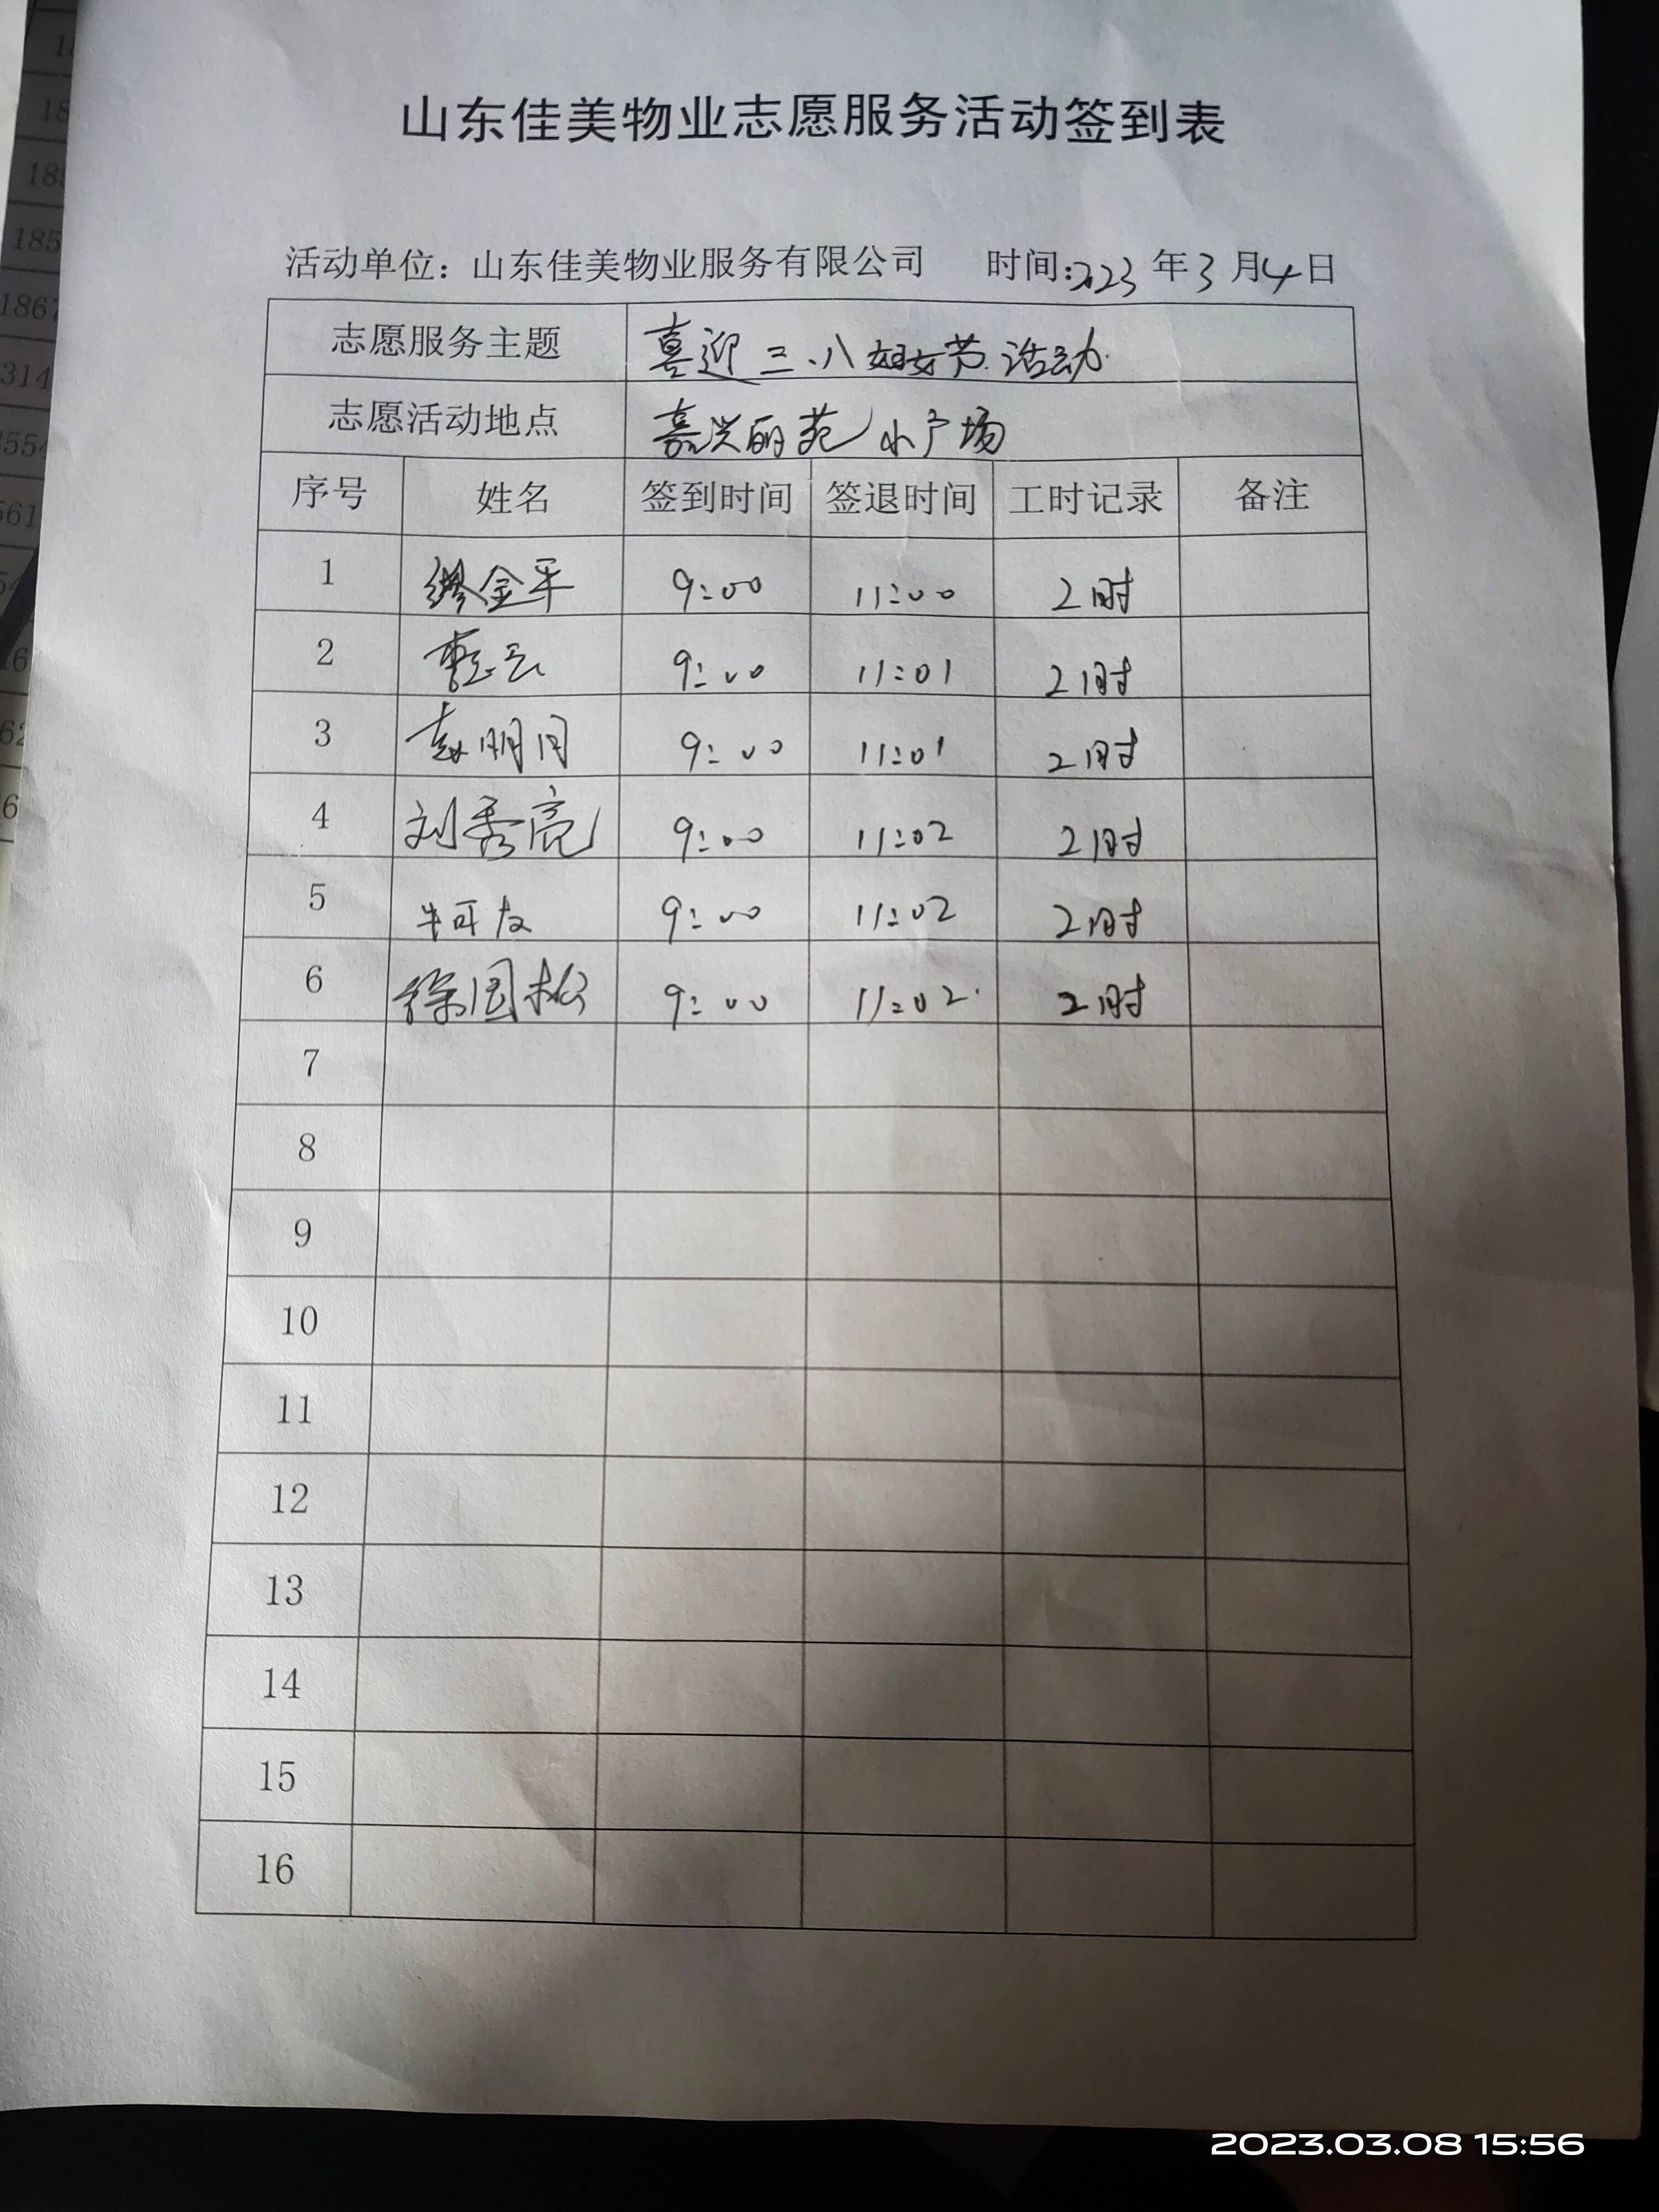 山东佳美物业志愿服务活动签到表
活动单位：山东佳美物业服务有限公司 时间：2023 年 3 月 4 日
志愿服务主题 喜迎三.八妇女节.活动.
志愿活动地点 嘉兴丽苑小广场
序号 姓名 签到时间 签退时间 工时记录 备注
1 金平 9:00 11:00 2时
2 9:00 11:01 2时
3 明月 9:00 11:01 2时
4 刘秀亮 9:00 11:02 2时
5 牛可友 9:00 11:02 2时
6 徐国松 9:00 11:02 2时
7
8
9
10
11
12
13
14
15
16
2023.03.08 15:56